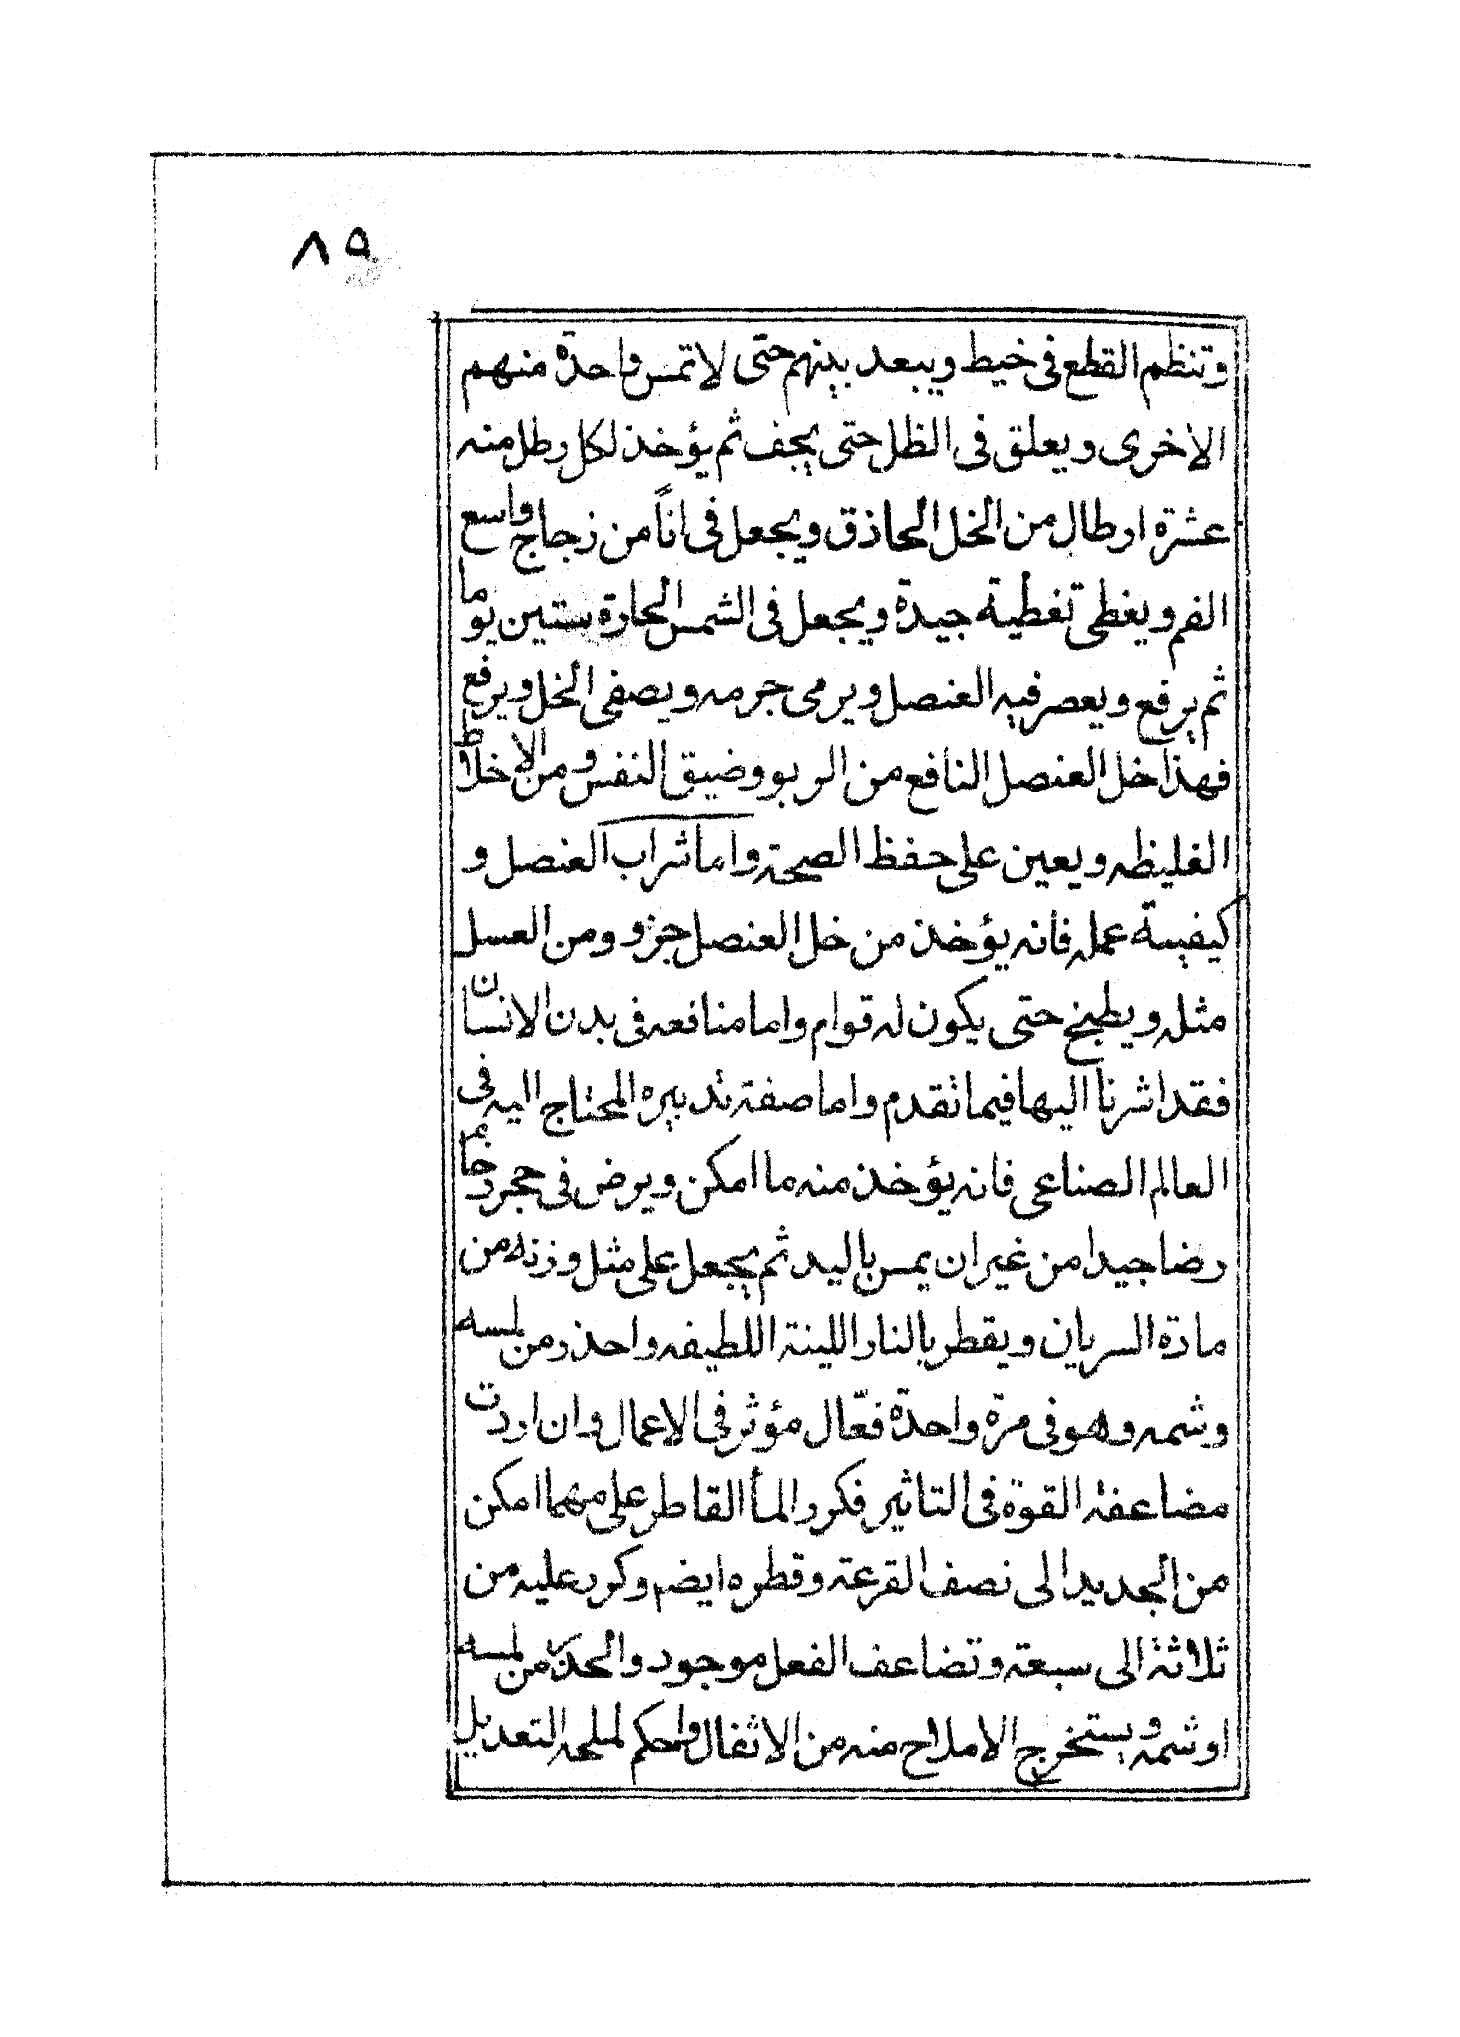 ٨٩
وتنظم القطع فى خيط ويبعد بينهم حتى لا تمس واحدة منهم
الاخرى ويعلق فى الظل حتى يجف ثم يؤخذ لكل رطل منه
عشرة ارطال من الخل الحاذق ويجعل فى اناً من زجاج واسع
الفم ويغطى تغطية جيدة ويجعل فى الشمس الحارة ستين يوما
ثم يرفع ويعصر فيه العنصل ويرمى جرمه ويصفى الخل ويرفع
فهذا خل العنصل النافع من الربو وضيق النفس ومن الاخلاط
الغليظه ويعين على حفظ الصحة واما شراب العنصل و
كيفيسة عمله فانه يؤخذ من خل العنصل جزو ومن العسل
مثله ويطبخ حتى يكون له قوام واما منافعه فى بدن الانسان
فقد اشرنا اليها فيما تقدم واما صفة تدبيره المحتاج اليه فى
العالم الصناعى فانه يؤخذ منه ما امكن ويرض فى حجر رخام
رضا جيدا من غير ان يمس باليد ثم يجعل على مثل وزنه من
مادة السريان ويقطر بالنار اللينة اللطيفه واحذر من لمسه
وشمه وهو فى مرة واحدة فعّال مؤثر فى الاعمال وان اردت
مضاعفة القوة فى التاثير فكرر المأ القاطر على مهما امكن
من الجديد الى نصف القرعة وقطره ايضم وكرر عليه من
ثلاثة الى سبعة وتضاعف الفعل موجود والحذر من لمسه
او شمه ويستخرج الاملاح منه من الاثفال والحكم لملحه التعديل